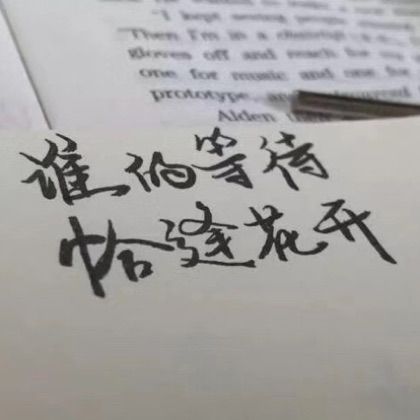 "I kept seeing people
Then I'm in a
gloves off and reach for my
one for music and one for
prototype and
Alden
谁的等待
恰逢花开